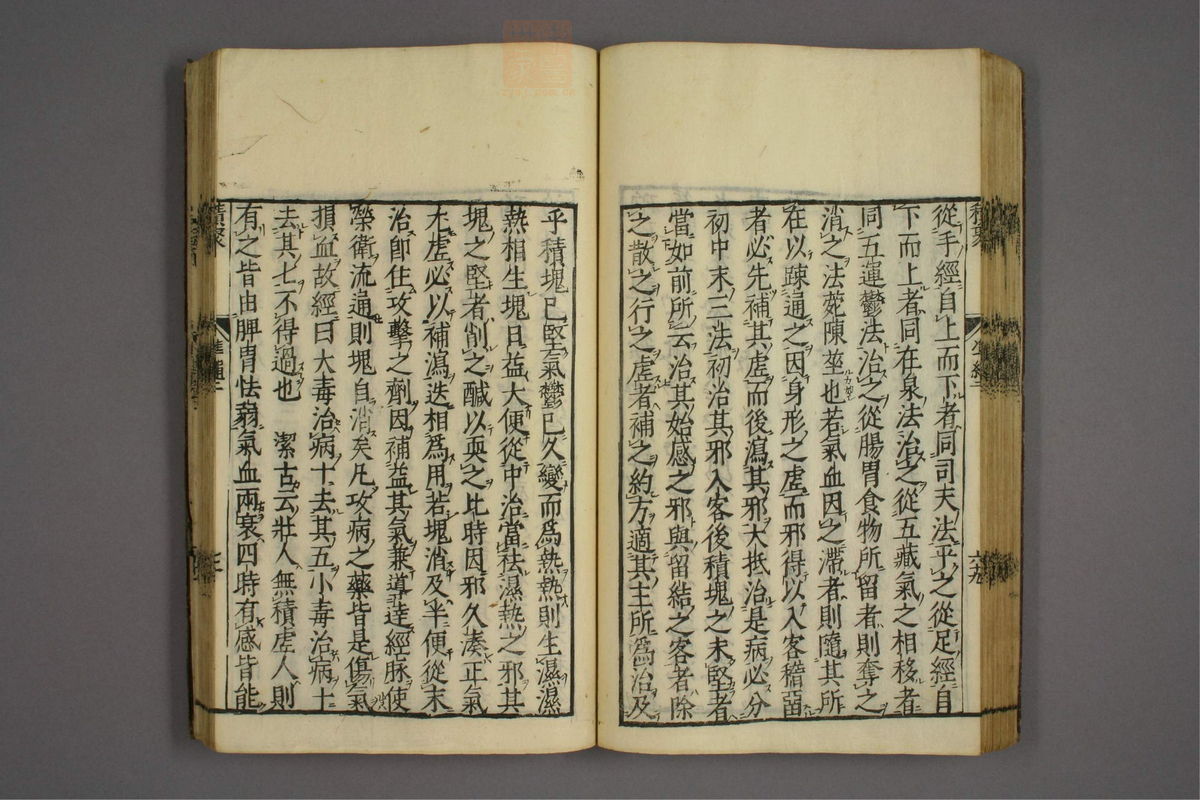 從手經自上而下者同司天法平之從足經自
下而上者同在泉法治之從五藏氣之相移者
同五運鬱法治之從腸胃食物所留者則奪之
消之法菀陳莝也若氣血因之滯者則隨其所
在以疎通之因身形之虛而邪得以入客稽留
者必先補其虛而後瀉其邪大抵治是病必分
初中末三法初治其邪入客後積塊之未堅者
當如前所云治其始感之邪與留結之客者除
之散之行之虛者補之約方適其主所爲治及
乎積塊已堅氣鬱已久變而爲熱熱則生濕濕
熱相生塊日益大便從中治當祛濕熱之邪其
塊之堅者削之鹹以耎之比時因邪久湊正氣
尤虛必以補瀉迭相爲用若塊消及半便從末
治卽住攻擊之劑因補益其氣兼導達經脉使
榮衛流通則塊自消矣凡攻病之藥皆是傷氣
損血故經曰大毒治病十去其五小毒治病十
去其七不得過也　潔古云壯人無積虛人則
有之皆由脾胃怯弱氣血兩衰四時有感皆能